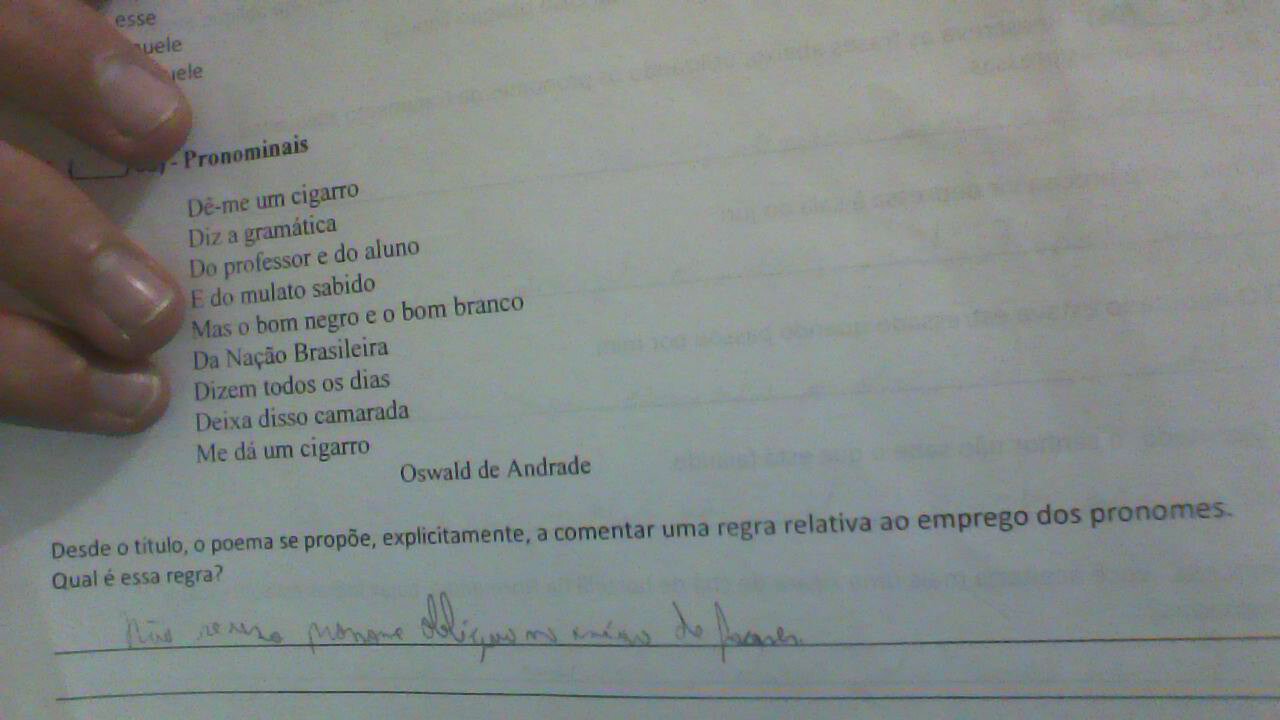 esse
uele
uele
- Pronominais
Dê-me um cigarro
Diz a gramática
Do professor e do aluno
E do mulato sabido
Mas o bom negro e o bom branco
Da Nação Brasileira
Dizem todos os dias
Deixa disso camarada
Me dá um cigarro
Oswald de Andrade
Desde o título, o poema se propõe, explicitamente, a comentar uma regra relativa ao emprego dos pronomes.
Qual é essa regra?
Não se usa pronome oblíquo no início de frases.